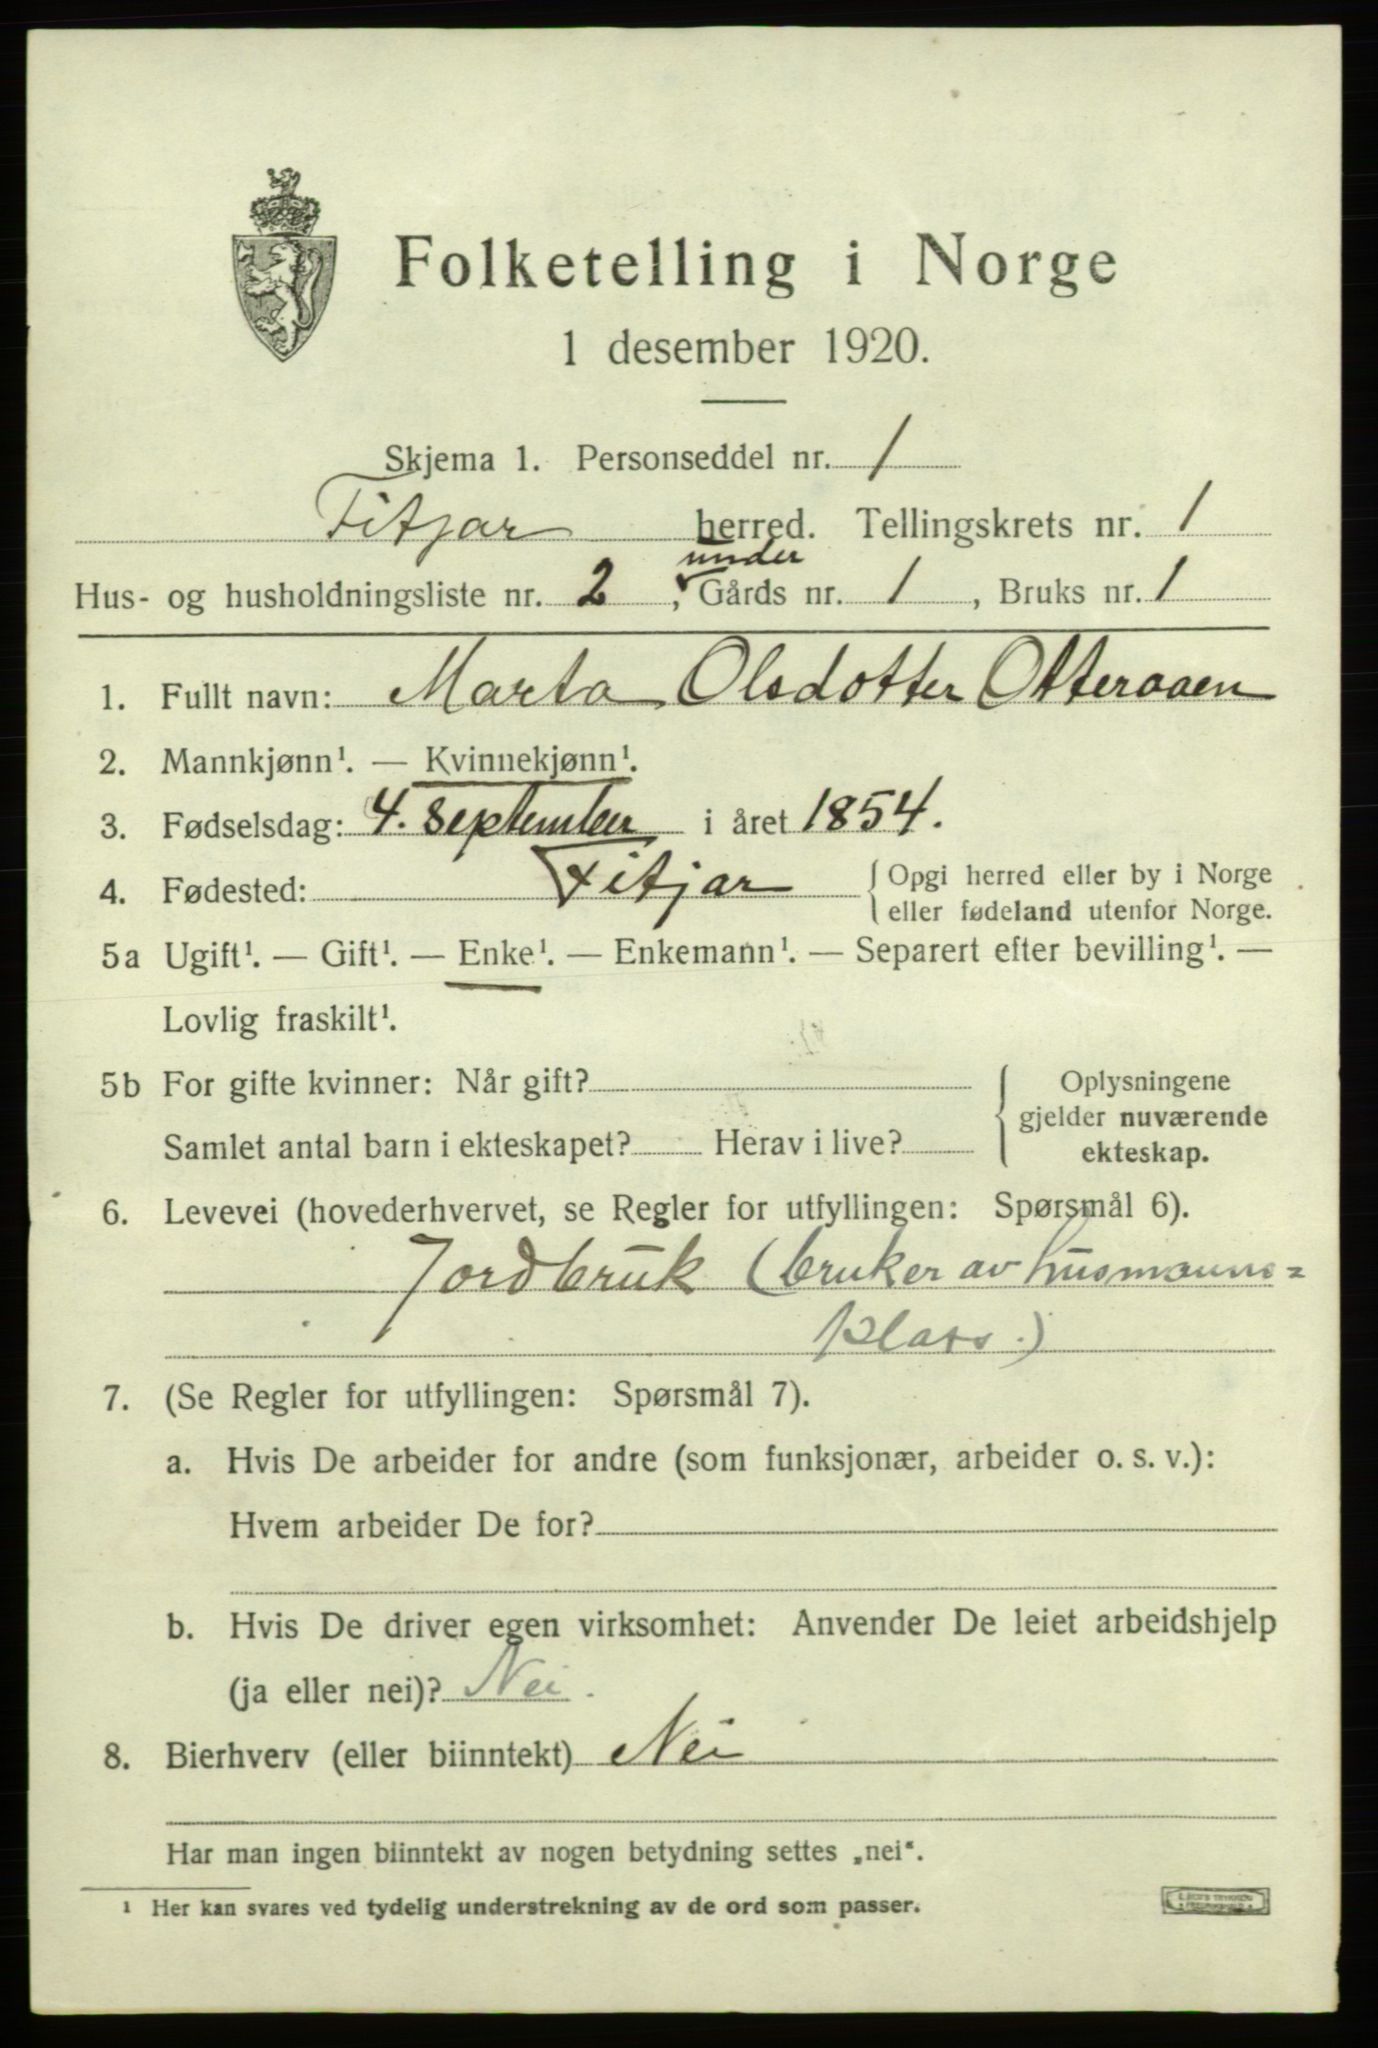 Folketelling i Norge
1 desember 1920.
Skjema 1. Personseddel nr. 1
Fitjar herred. Tellingskrets nr. 1
under
Hus- og husholdningsliste nr. 2, Gårds nr. 1, Bruks nr. 1
1. Fullt navn: Marta Olsdotter Otteraaen
2. Mannkjønn¹. — Kvinnekjønn¹.
3. Fødselsdag: 4. september i året 1854.
4. Fødested: Fitjar { Opgi herred eller by i Norge
eller fødeland utenfor Norge.
5a Ugift¹. — Gift¹. — Enke¹. — Enkemann¹. — Separert efter bevilling¹. —
Lovlig fraskilt¹.
5b For gifte kvinner: Når gift? { Oplysningene
gjelder nuværende
Samlet antal barn i ekteskapet? Herav i live? ekteskap.
6. Levevei (hovederhvervet, se Regler for utfyllingen: Spørsmål 6).
Jordbruk (bruker av husmanns=
plass.)
7. (Se Regler for utfyllingen: Spørsmål 7).
a. Hvis De arbeider for andre (som funksjonær, arbeider o. s. v.):
Hvem arbeider De for?
b. Hvis De driver egen virksomhet: Anvender De leiet arbeidshjelp
(ja eller nei)? Nei.
8. Bierhverv (eller biinntekt) Nei
Har man ingen biinntekt av nogen betydning settes „nei“.
¹ Her kan svares ved tydelig understrekning av de ord som passer.